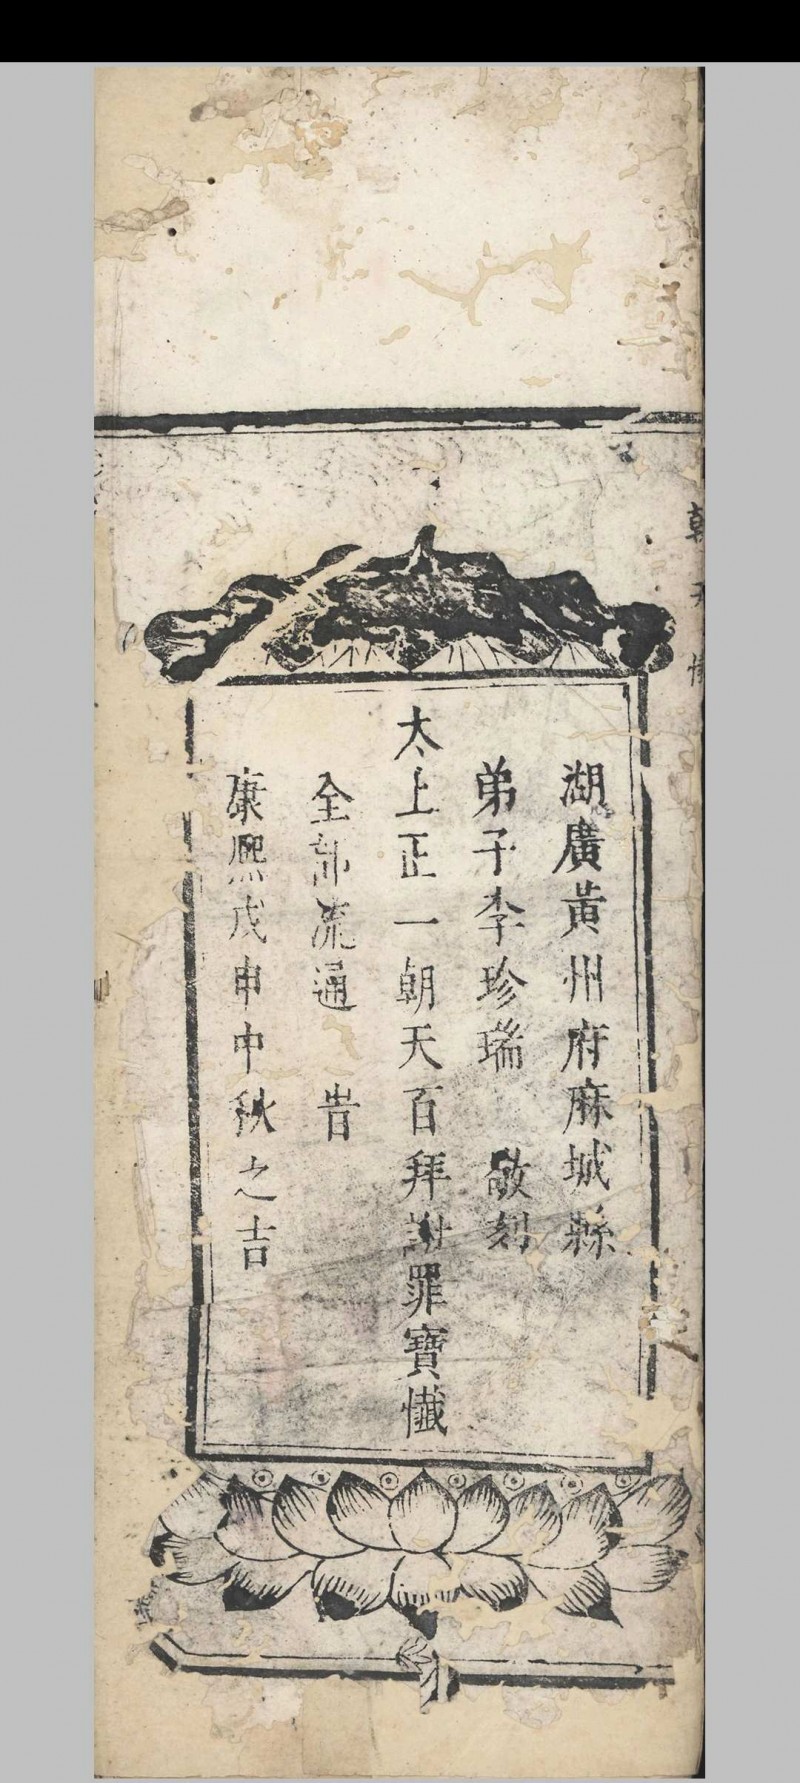 湖廣黃州府麻城縣
弟子李珍瑞 敬刻
太上正一朝天百拜謝罪寶懺
全部流通 旹
康熙戊申中秋之吉
朝天懺